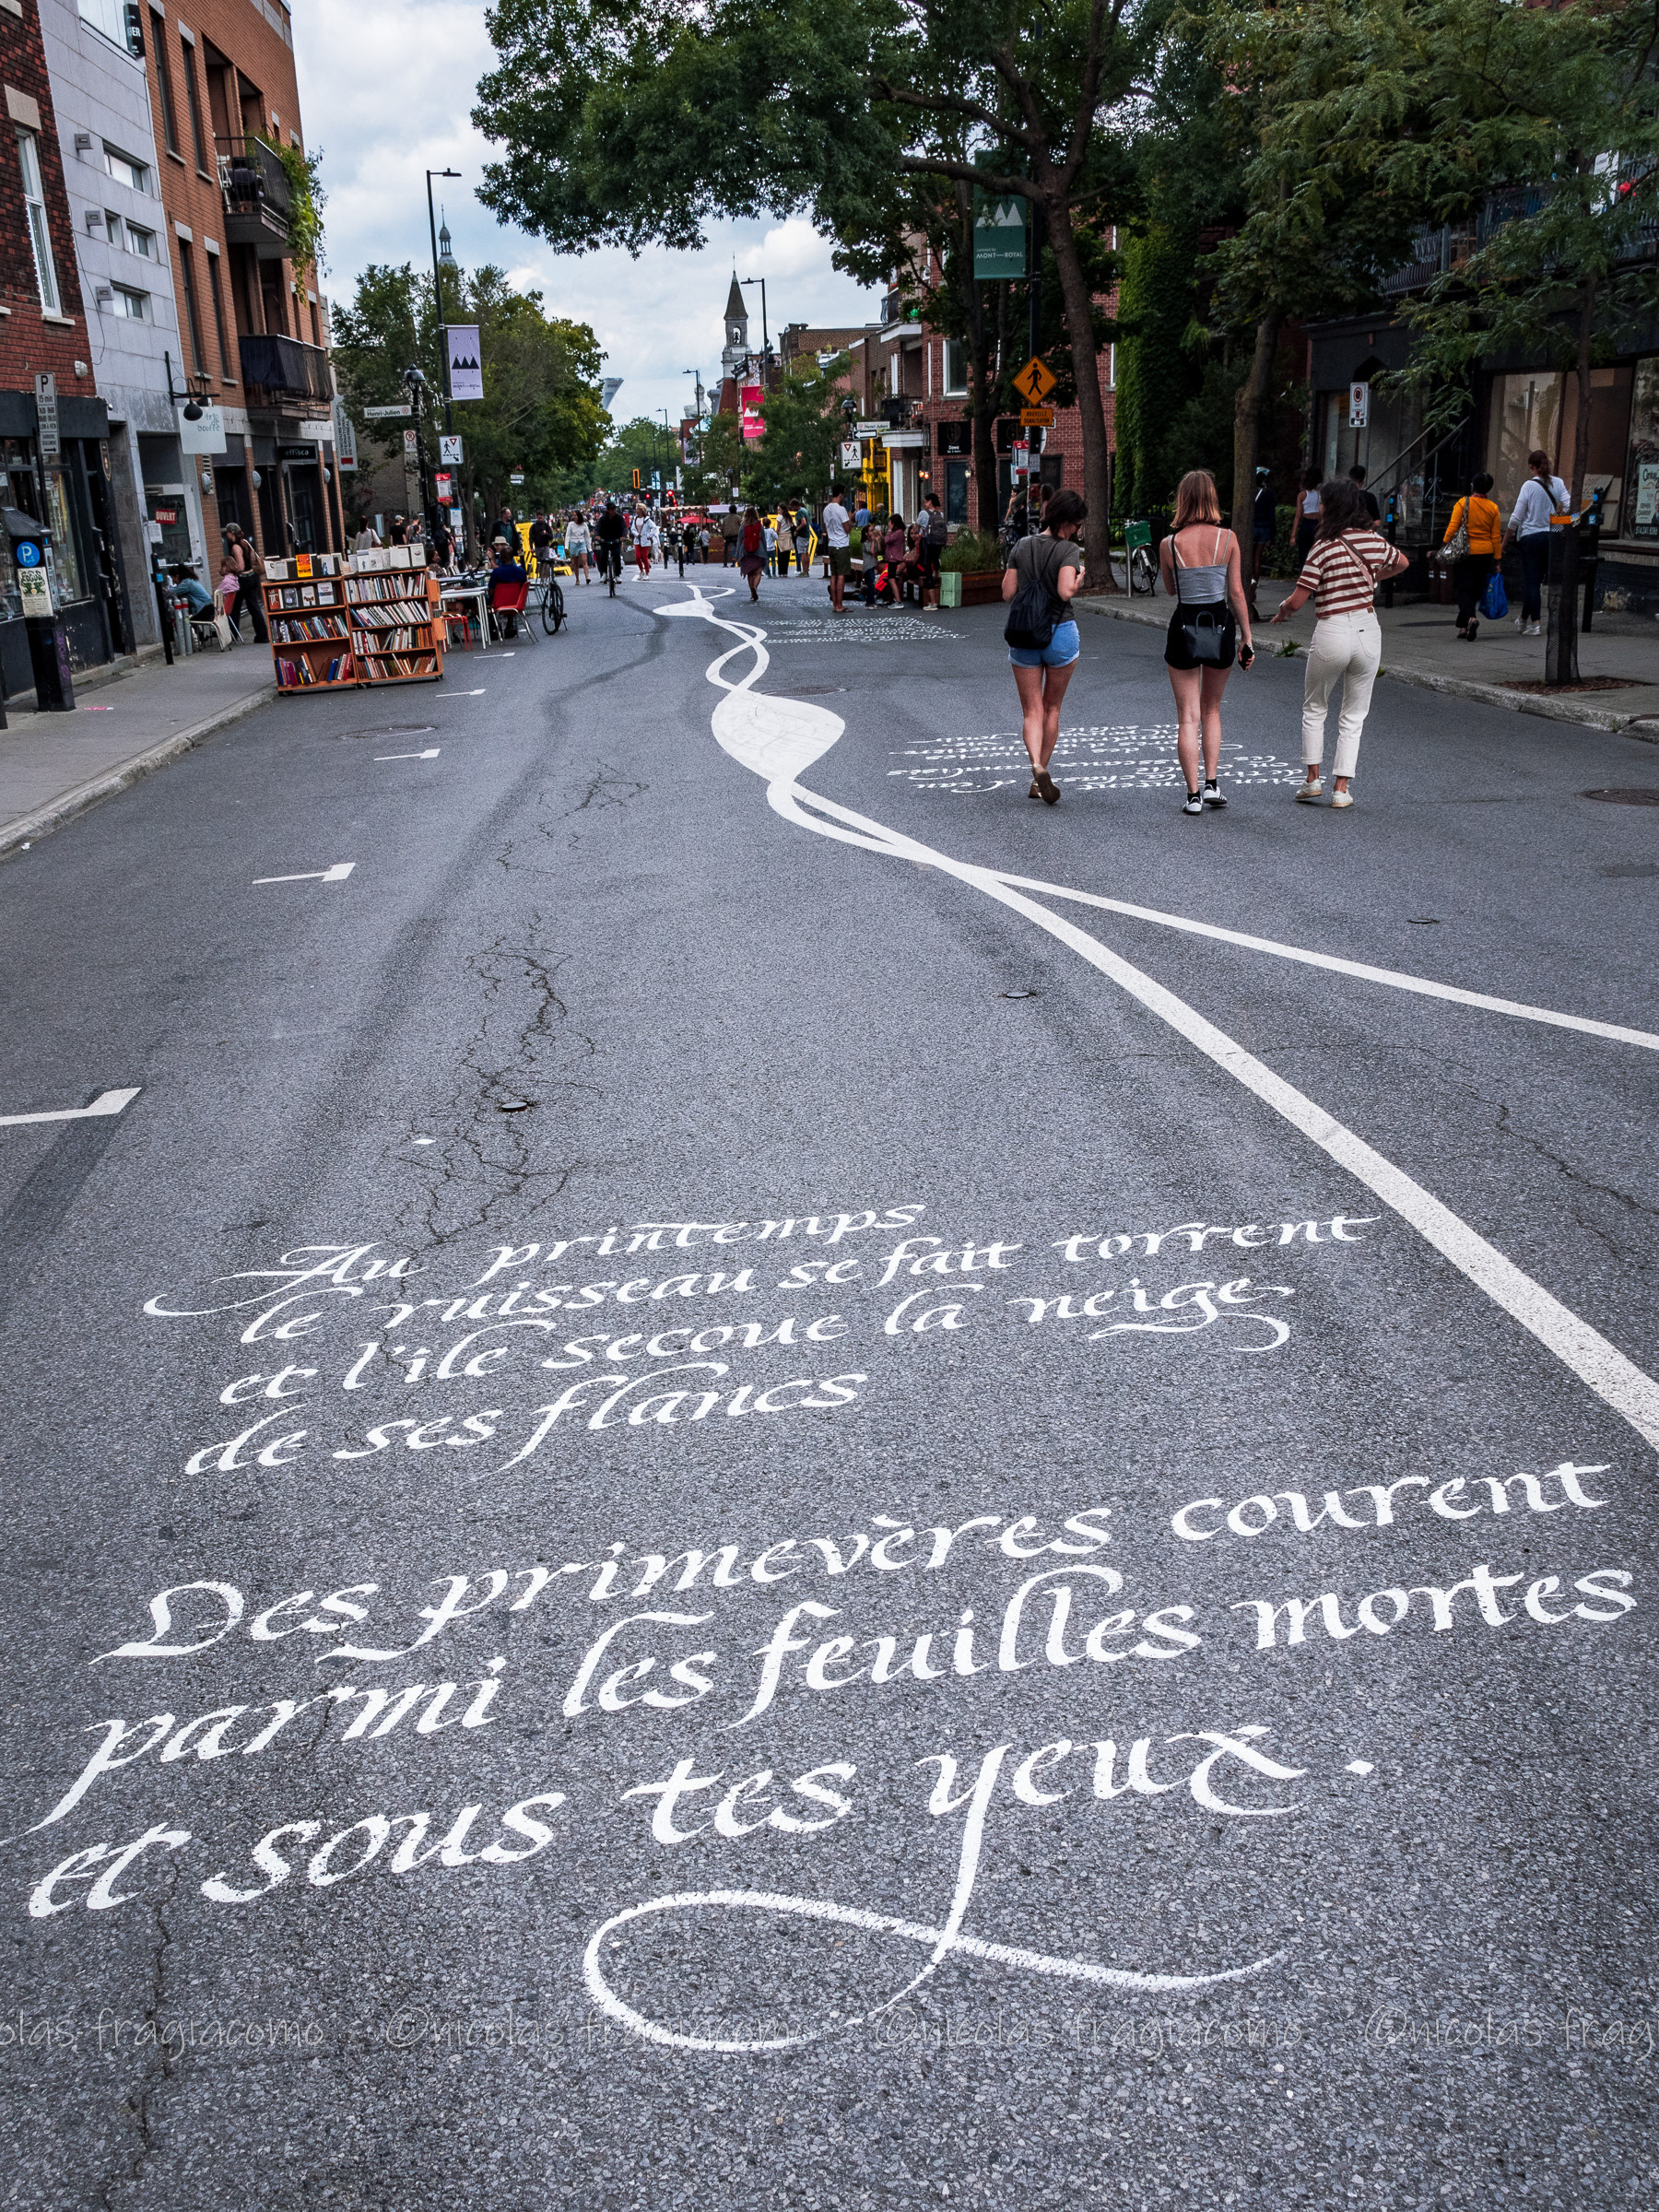 MONT—ROYAL
Henri-Julien
OUVERT
P
15 min
P
Au printemps
le ruisseau se fait torrent
et l'île secoue la neige
de ses flancs
Des primevères courent
parmi les feuilles mortes
et sous tes yeux.
©nicolas fragiacomo